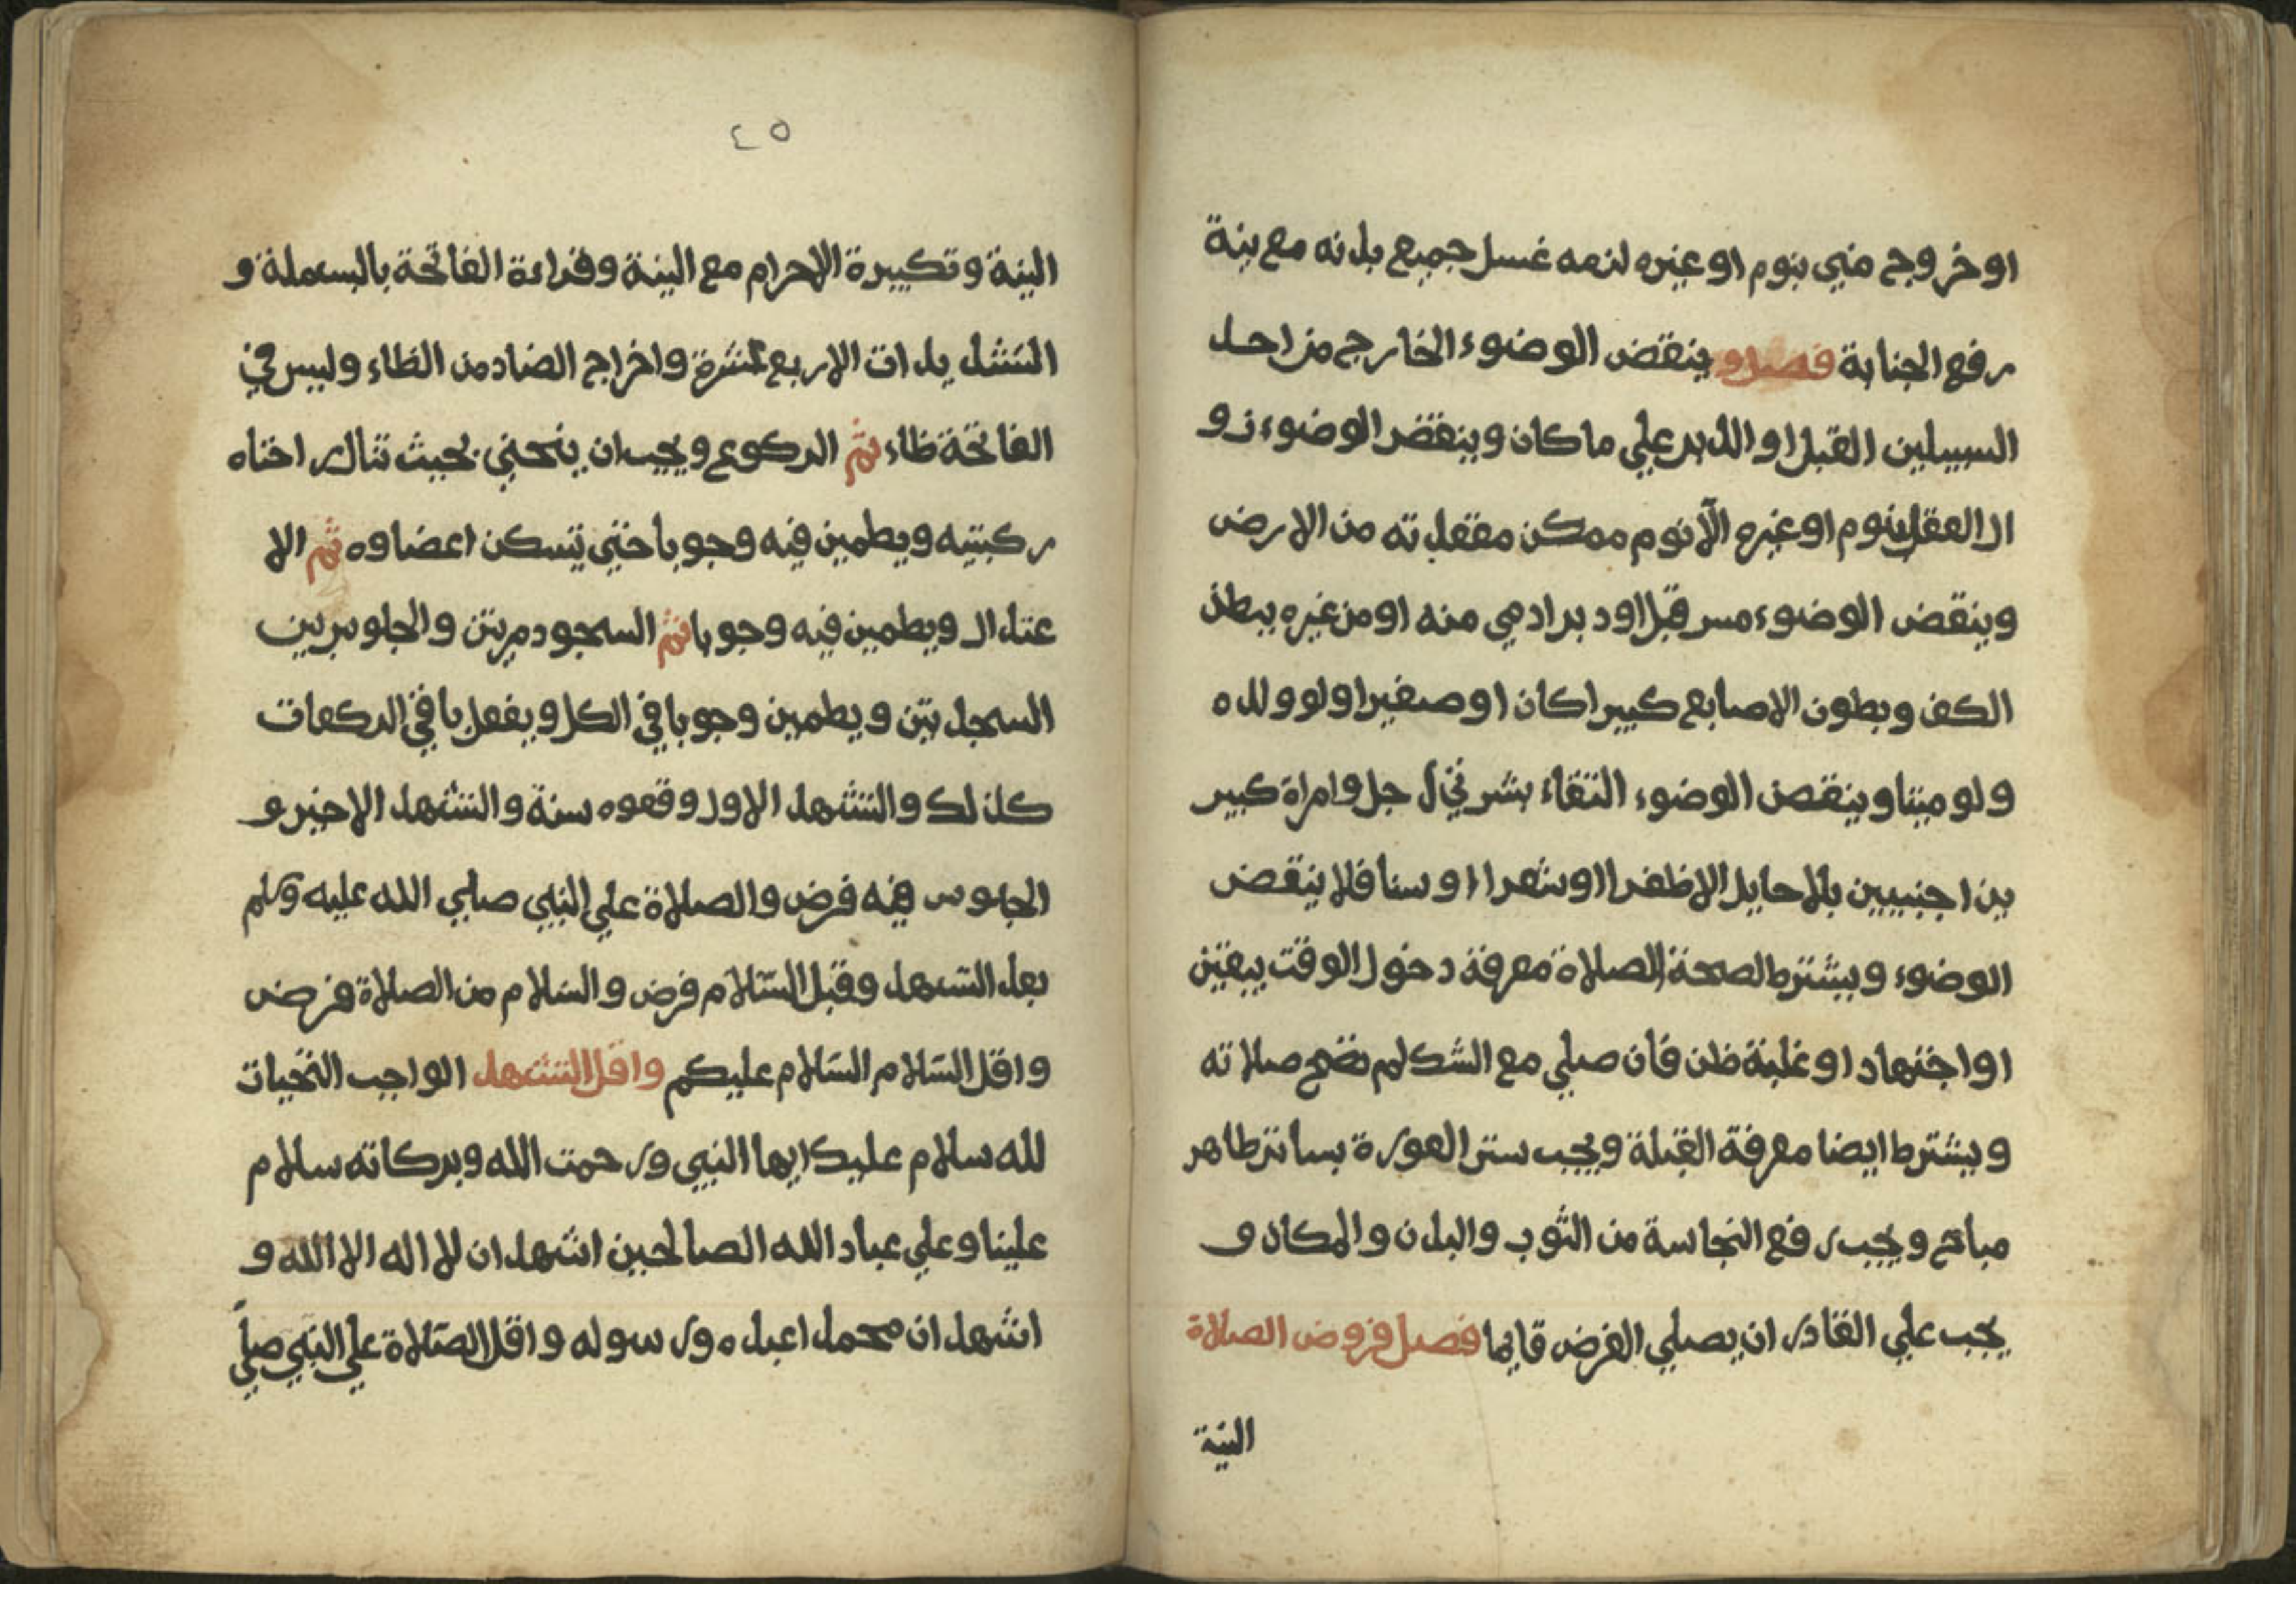 او خروج مني بنوم او غيره لزمه غسل جميع بدنه مع نية
رفع الجنابة فصل و ينقض الوضوء الخارج من احد
السبيلين القبل او الدبر علي ما كان وينقض الوضوء زو
ال العقل بنوم او غيره الّا نوم ممكن مقعدته من الارض
وينقض الوضوء مس قبل او دبر ادمي منه او من غيره ببطن
الكف وبطون الاصابع كبيرا كان او صغيرا ولو ولده
ولو ميتا وينقض الوضوء التقاء بشرتي رجل وامراة كبير
ين اجنبيين بلا حايل الا ظفرا او شعرا او سنا فلا ينقض
الوضوء ويشترط لصحة الصلاة معرفة دخول الوقت بيقين
او اجتهاد او غلبة ظن فان صلي مع الشك لم تصح صلاته
ويشترط ايضا معرفة القبلة ويجب ستر العورة بساتر طاهر
مباح ويجب رفع النجاسة من الثوب والبدن والمكان و
يجب علي القادر ان يصلي الفرض قايما فصل فروض الصلاة
النية
٤٥
النية وتكبيرة الاحرام مع النية وقراءة الفاتحة بالبسملة و
التشديدات الاربع عشرة واخراج الضاد من الظاء وليس في
الفاتحة ظاء ثم الركوع ويجب ان ينحني بحيث تنال راحتاه
ركبتيه ويطمين فيه وجوبا حتي تسكن اعضاوه ثم الا
عتدال ويطمين فيه وجوبا ثم السجود مرتين والجلوس بين
السجدتين ويطمين وجوبا في الكل ويفعل باقي الركعات
كذلك والتشهد الاول وقعوه سنة والتشهد الاخير و
الجلوس فيه فرض والصلاة علي النبي صلي الله عليه وسلم
بعد التشهد وقبل السّلام فرض والسلام من الصلاة فرض
واقل السّلام السّلام عليكم واقل التشهد الواجب التحيات
لله سلام عليك ايها النبي ورحمت الله وبركاته سلام
علينا وعلي عباد الله الصالحين اشهد ان لا اله الا الله و
اشهد ان محمدا عبده ورسوله واقل الصّلاة علي النبي صلي